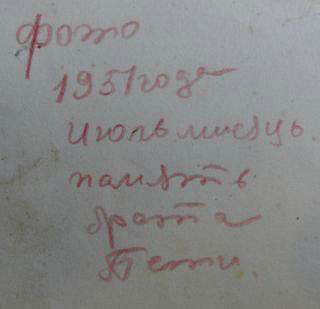 фото
1951 года
июль мисяць
память
брата
Пети.